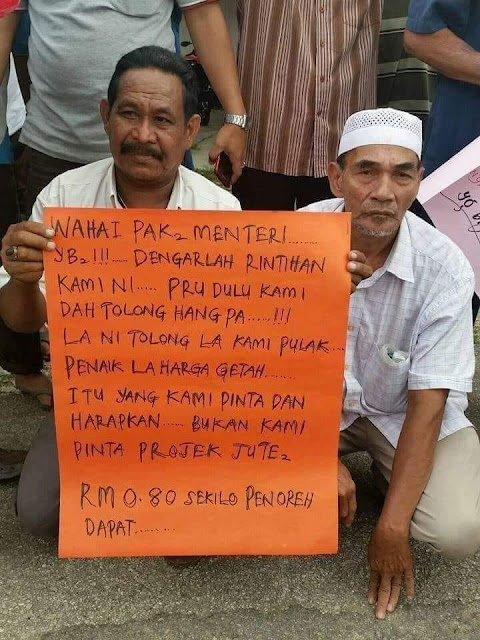 WAHAI PAK2 MENTERI........
YB2!!!.... DENGARLAH RINTIHAN
KAMI NI..... PRU DULU KAMI
DAH TOLONG HANGPA.....!!!
LA NI TOLONG LA KAMI PULAK...
PENAIK LA HARGA GETAH........
ITU YANG KAMI PINTA DAN
HARAPKAN..... BUKAN KAMI
PINTA PROJEK JUTE2
RM 0.80 SEKILO PENOREH
DAPAT........